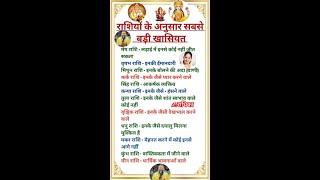 राशियों के अनुसार सबसे
बड़ी खासियत
मेष राशि - लड़ाई में इनसे कोई नहीं जीत
सकता
वृषभ राशि - इनकी ईमानदारी
मिथुन राशि - इनके बोलने की अदा (वाणी)
कर्क राशि - इनके जैसे प्यार करने वाले
सिंह राशि - आकर्षक व्यक्तित्व
कन्या राशि - इनके जैसे हंसने वाले
तुला राशि - इनके जैसे शांत स्वभाव वाले
कोई नहीं
वृश्चिक राशि - इनके जैसी देखभाल करने
वाले
धनु राशि - इनके जैसे दयालु मिलना
मुश्किल है
मकर राशि - मेहनत करने में कोई इनसे
आगे नहीं
कुंभ राशि - वास्तविकता में जीने वाले
मीन राशि - धार्मिक भावनाओं वाले